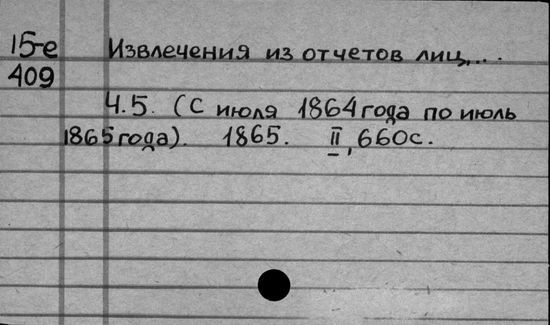 15-е Извлечения из отчетов лиц,...
409
Ч.5. (С июля 1864 года по июль
1865 года). 1865. II, 660с.